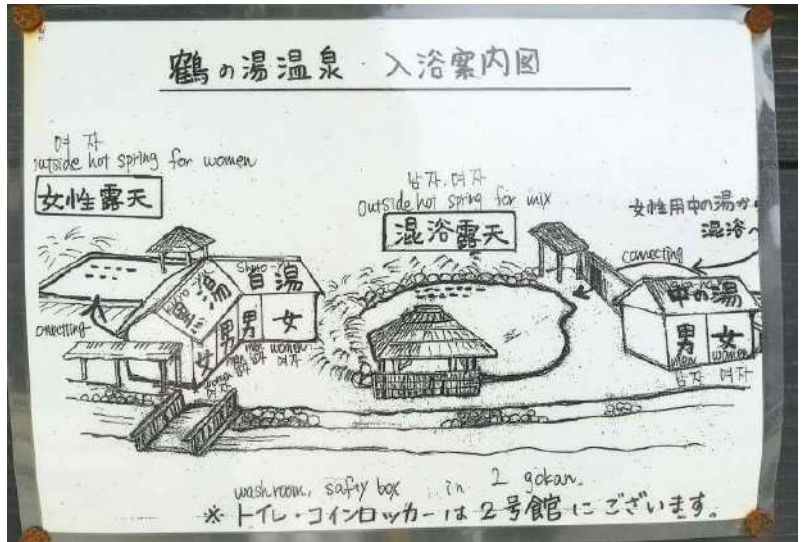 鶴の湯温泉・入浴案内図
여자
outside hot spring for women
女性露天
남자.여자
Outside hot spring for mix
混浴露天
女性用中の湯から
混浴へ
connecting
connecting
Shiro-Yu
白湯
黒湯
女 男 男 女
men women
남자 여자
여자
中の湯
男 女
men women
남자 여자
washroom, safty box in 2 gokan.
※トイレ・コインロッカーは2号館にございます。